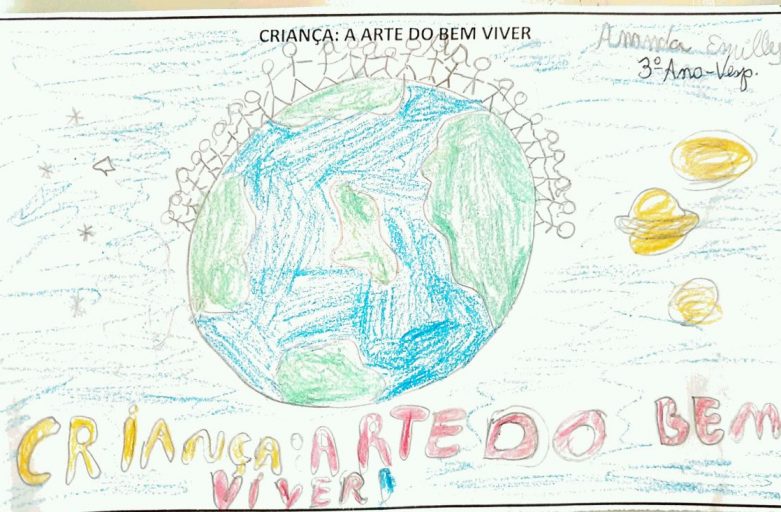 CRIANÇA: A ARTE DO BEM VIVER
Ananda
3º Ano-Vesp.
CRIANÇA: ARTE DO BEM
VIVER!